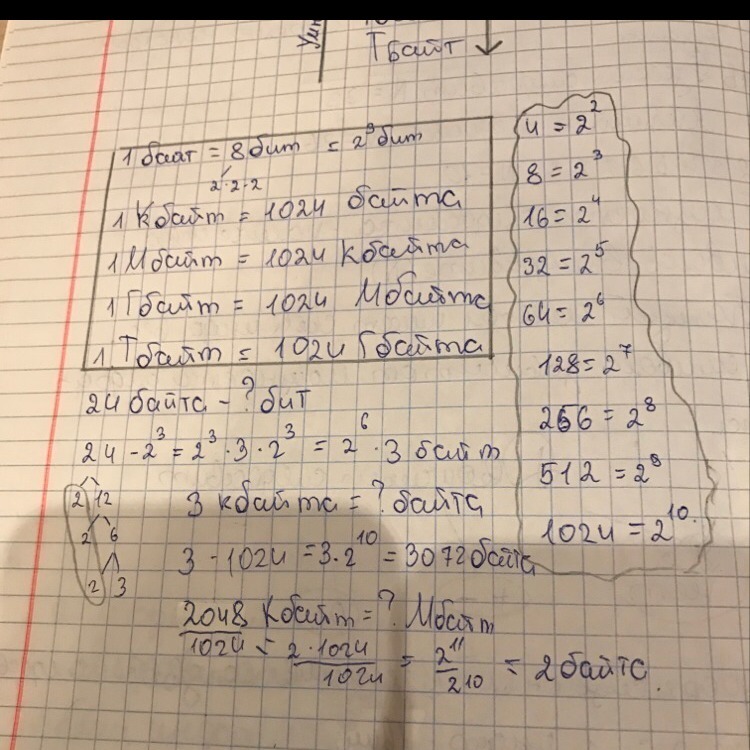 Тбайт
1 байт = 8 бит = 2³ бит
2·2·2
1 Кбайт = 1024 байта
1 Мбайт = 1024 Кбайта
1 Гбайт = 1024 Мбайта
1 Тбайт = 1024 Гбайта
4 = 2²
8 = 2³
16 = 2⁴
32 = 2⁵
64 = 2⁶
128 = 2⁷
256 = 2⁸
512 = 2⁹
1024 = 2¹⁰.
24 байта - ? бит
24 - 2³ = 2³ · 3 · 2³ = 2⁶ · 3 байт
2 12
2 6
2 3
3 кбайта = ? байта
3 - 1024 = 3 · 2¹⁰ = 3072 байта
2048 Кбайт = ? Мбайт
2048/1024 = 2·1024/1024 = 2¹¹/2¹⁰ = 2 байта.